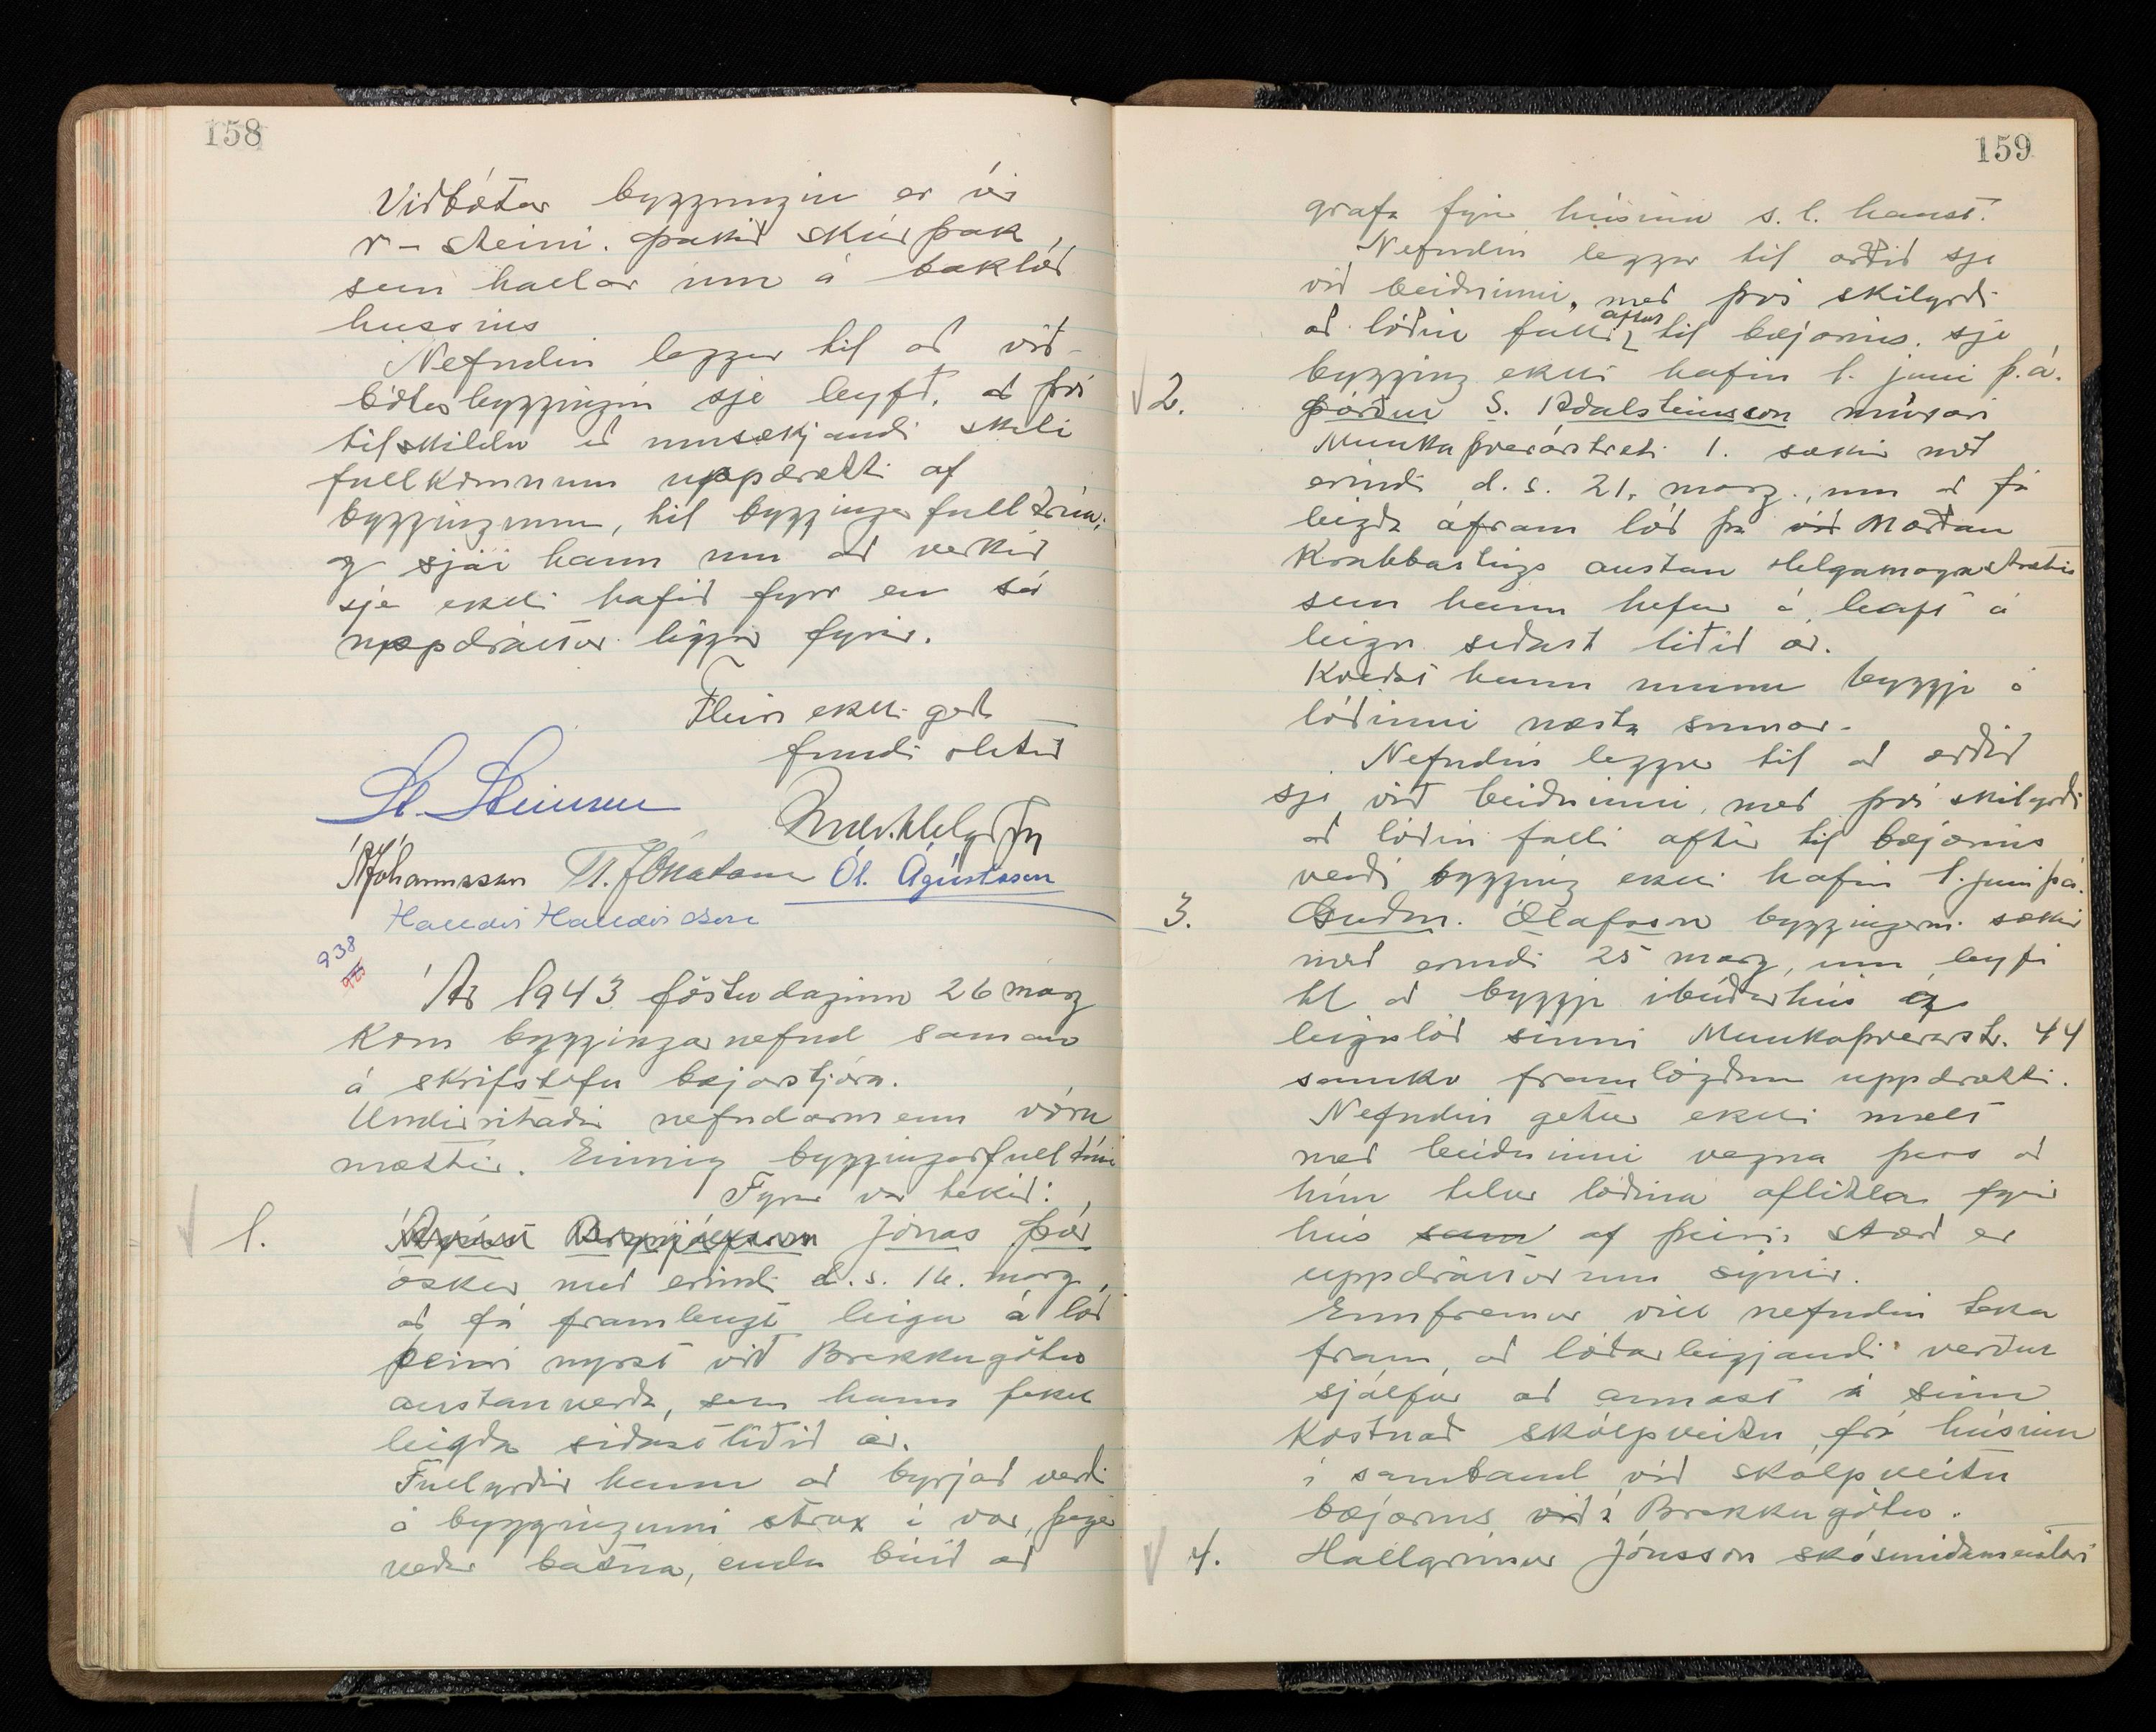 158
Viðbótar byggingin er úr
r-steini. þakið skúrþak,
sem hallar um á baklóð
hussins
Nefndin leggur til að við-
bótarbyggingin sje leyfð, að því
tilskildu að umsækjandi skili
fullkomnum uppdrætti af
byggingunum, til byggingafulltrúa,
og sjái hann um að verkið
sje ekki hafið fyrr en sá
uppdráttur liggur fyrir.
Fleira ekki gert
fundi slitið
St. Steinsen
ÁJóhannsson Tr. Jónatansson Ól. Ágústsson
Halldór Halldórsson
938
925
Ár 1943 föstudaginn 26 marz
kom bygginganefnd saman
á skrifstofu bæjarstjóra.
Undirritaðir nefndarmenn vóru
mættir. Einnig byggingarfulltrúi
Fyrir var tekið:
1. Jónas Þór
óskar með erindi d.s. 16. marz,
að fá framlengt leigu á lóð
þeirri nyrst við Brekkugötu
austanverða, sem hann fekk
leigða síðastliðið ár.
Fullyrðir hann að byrjað verði
á byggingunni strax í vor, þegar
veður batna, enda búið að
159
grafa fyrir húsinu s.l. haust.
Nefndin leggur til orðið sje
við beiðninni, með því skilyrði
að lóðin falli aftur til bæjarins, sje
bygging ekki hafin 1. juni þ.á.
2. Þórður S. Aðalsteinsson múrari
Munkaþverárstræti 1. sækir með
erindi d.s. 21. marz, um að fá
leigða áfram lóð þá við Norðan
Krabbastígs austan Helgamagrastrætis
sem hann hefur á leigt á
leigu siðast liðið ár.
Kveðst hann munu byggja á
lóðinni næsta sumar.
Nefndin leggur til að orðið
sje við beiðninni, með því skilyrði
að lóðin falli aftur til bæjarins
verði bygging ekki hafin 1. juni þ.á.
3. Guðm. Ólafsson byggingarm. sækir
með erindi 25 marz, um leyfi
til að byggja íbúðarhús á
leigulóð sinni Munkaþverárstr. 44
samkv framlögðum uppdrætti.
Nefndin getur ekki mælt
með beiðninni vegna þess að
hún telur lóðina oflitla fyrir
hús sem af þeirri stærð er
uppdrátturinn sýnir.
Ennfremur vill nefndin taka
fram, að lóðarleigjandi verður
sjálfur að annast á sinn
kostnað skólpveitu frá húsinu
í samband við skolpveitu
bæjarins við í Brekkugötu.
4. Hallgrímur Jónsson skósmíðameistari